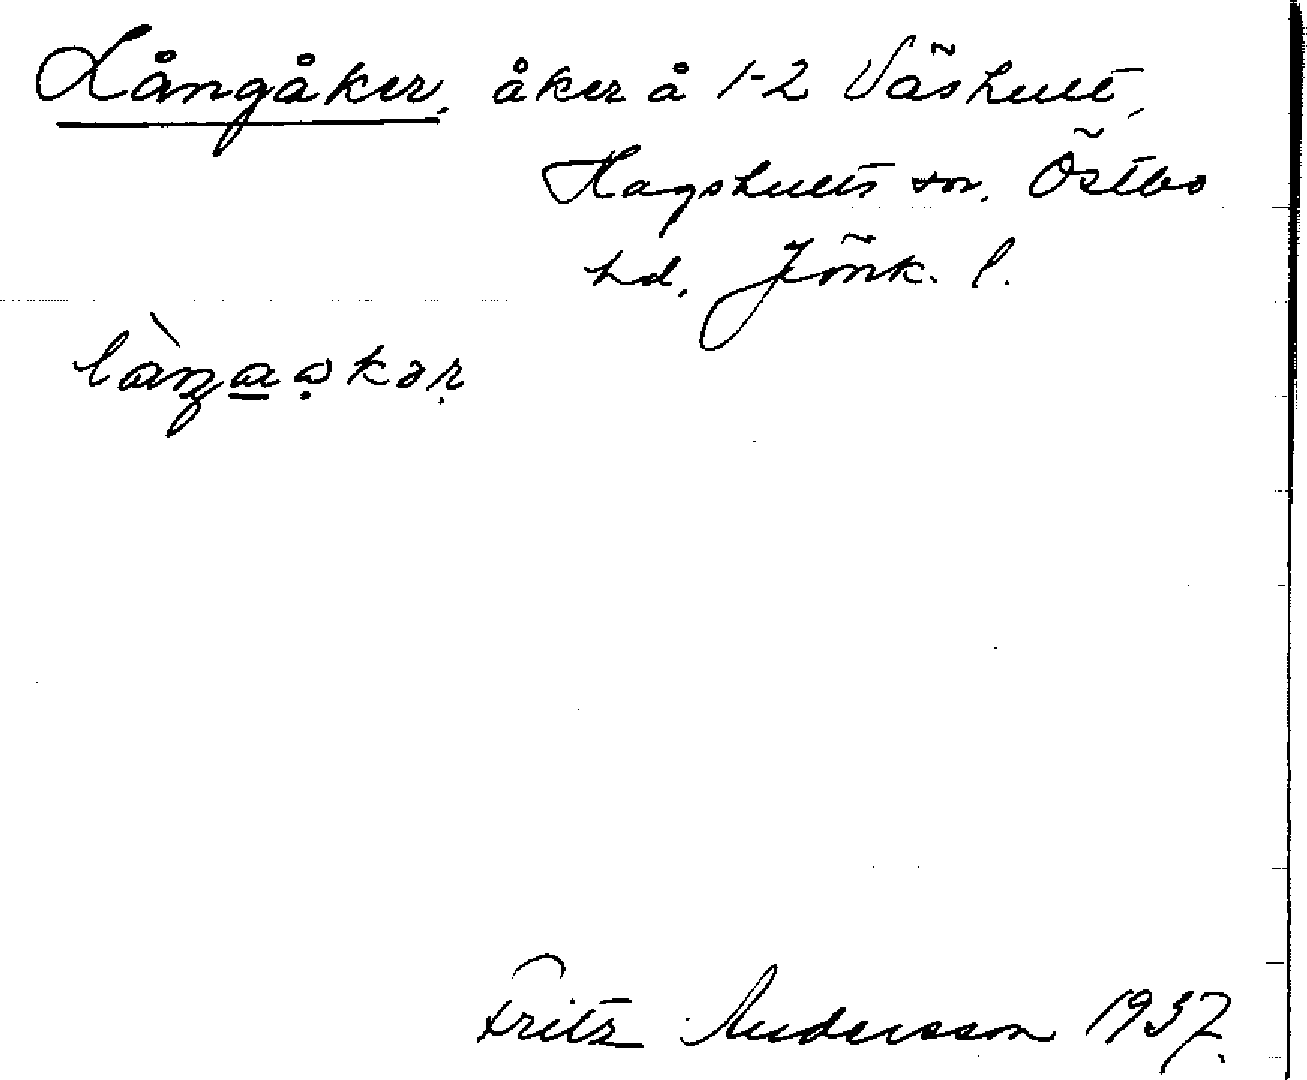 Långåker, åker å 1-2 Väshult,
Hagshults sn. Östbo
hd. Jönk. l.
Fritz Andersson 1937.